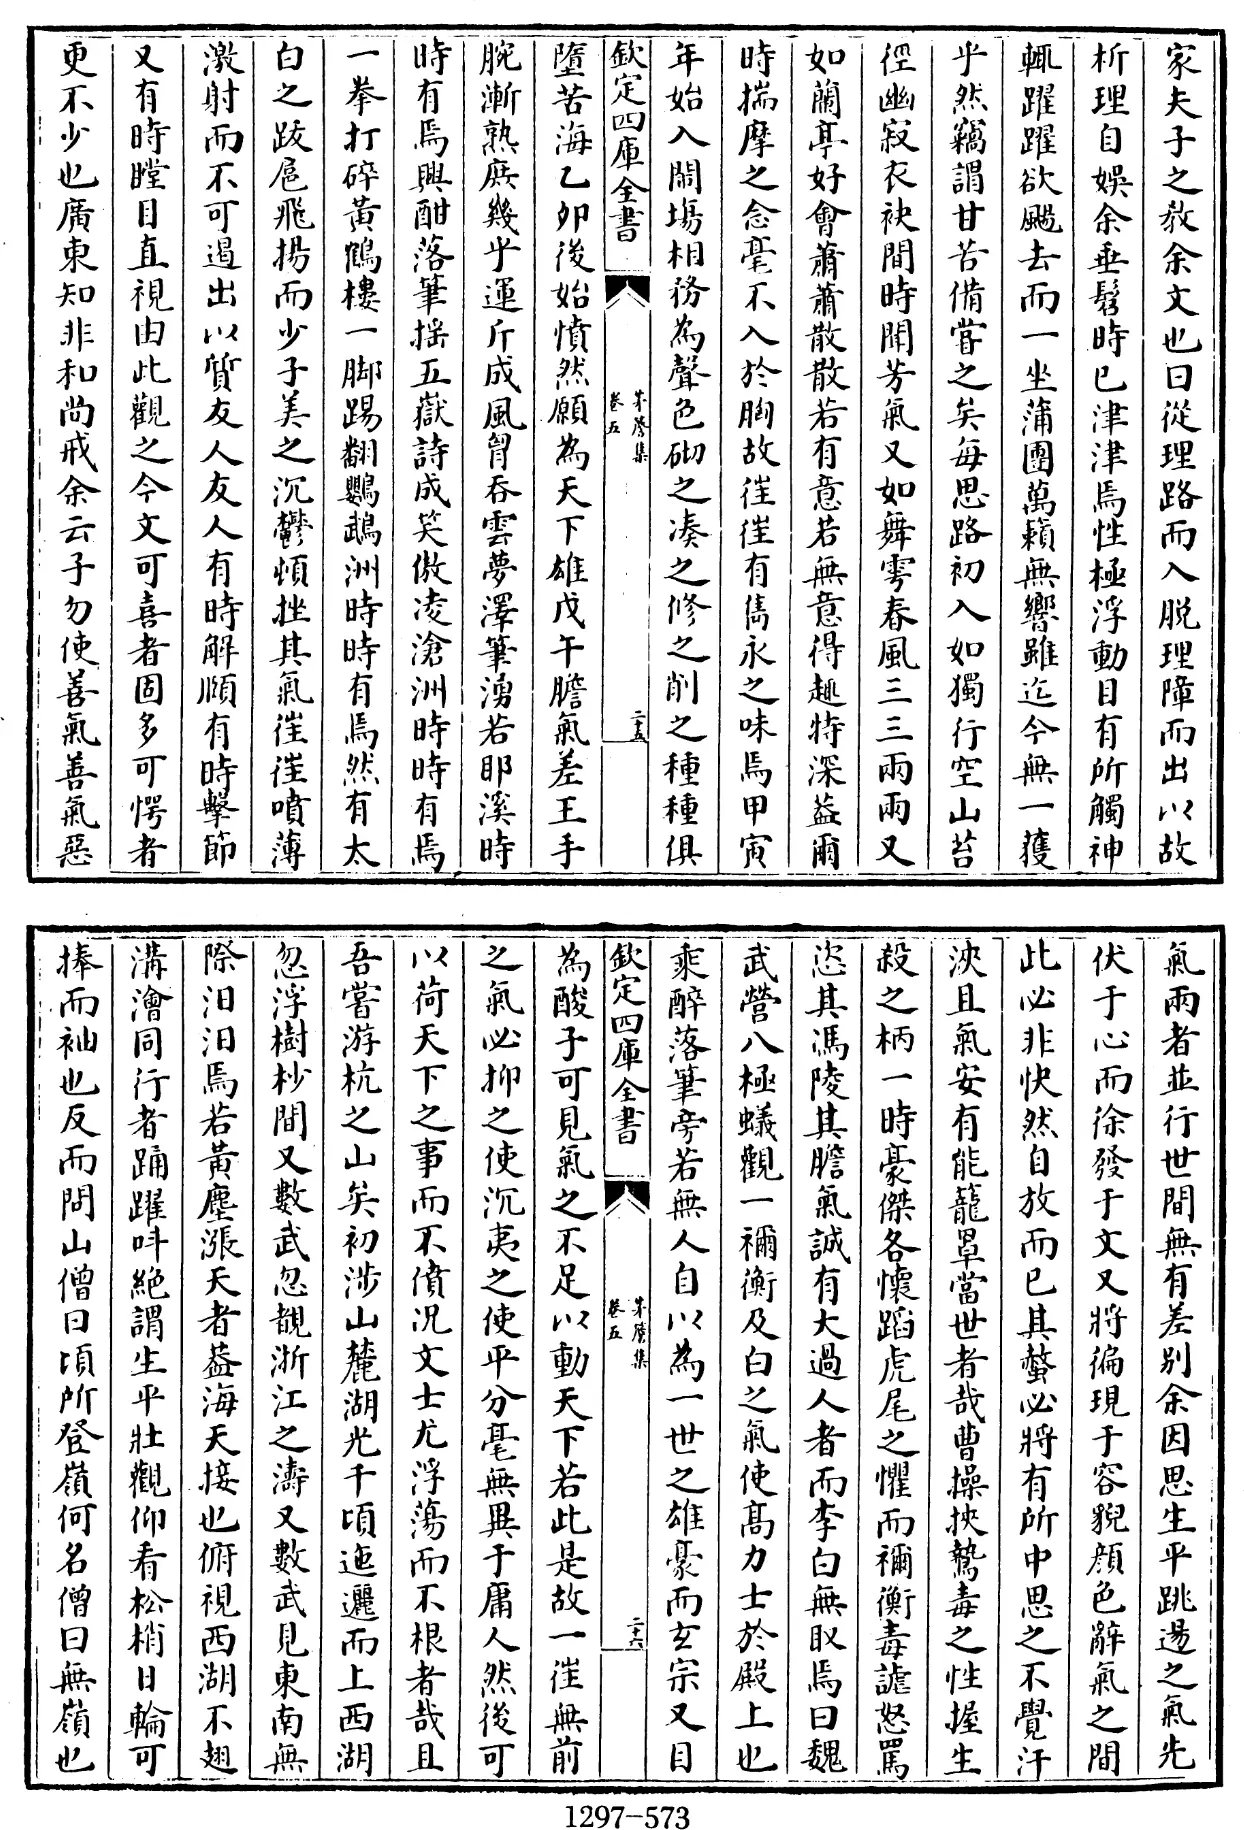 家夫子之教余文也曰從理路而入脫理障而出以故
析理自娛余垂髫時已津津焉性極浮動目有所觸神
輒躍躍欲颺去而一坐蒲團萬籟無響雖迄今無一獲
乎然竊謂甘苦備嘗之矣每思路初入如獨行空山苔
徑幽寂衣袂間時聞芳氣又如舞雩春風三三兩兩又
如蘭亭好會蕭蕭散散若有意若無意得趣特深葢爾
時揣摩之念毫不入於胸故徃徃有雋永之味焉甲寅
年始入鬧塲相務為聲色砌之凑之修之削之種種俱
欽定四庫全書
茅簷集
卷五
二十五
墮苦海乙夘後始憤然願為天下雄戊午膽氣差王手
腕漸熟庶幾乎運斤成風胷吞雲夢澤筆湧若耶溪時
時有焉興酣落筆揺五嶽詩成笑傲凌滄洲時時有焉
一拳打碎黃鶴樓一脚踢翻鸚鵡洲時時有焉然有太
白之跋扈飛揚而少子美之沉鬱頓挫其氣徃徃噴薄
激射而不可遏出以質友人友人有時解頤有時擊節
又有時瞠目直視由此觀之今文可喜者固多可愕者
更不少也廣東知非和尚戒余云子勿使善氣善氣惡
氣兩者並行世間無有差別余因思生平跳盪之氣先
伏于心而徐發于文又將徧現于容貌顏色辭氣之間
此必非快然自放而已其螫必將有所中思之不覺汗
浹且氣安有能籠罩當世者哉曹操挾鷙毒之性握生
殺之柄一時豪傑各懷蹈虎尾之懼而禰衡毒謔怒罵
恣其馮陵其膽氣誠有大過人者而李白無取焉曰魏
武營八極蟻觀一禰衡及白之氣使髙力士於殿上也
乘醉落筆旁若無人自以為一世之雄豪而玄宗又目
欽定四庫全書
茅簷集
卷五
二十六
為酸子可見氣之不足以動天下若此是故一徃無前
之氣必抑之使沉夷之使平分毫無異于庸人然後可
以荷天下之事而不僨况文士尤浮蕩而不根者哉且
吾嘗游杭之山矣初涉山麓湖光千頃迤邐而上西湖
忽浮樹杪間又數武忽覩浙江之濤又數武見東南無
際汨汨焉若黃塵漲天者葢海天接也俯視西湖不翅
溝澮同行者踊躍呌絶謂生平壯觀仰看松梢日輪可
捧而袖也反而問山僧曰頃所登嶺何名僧曰無嶺也
1297-573